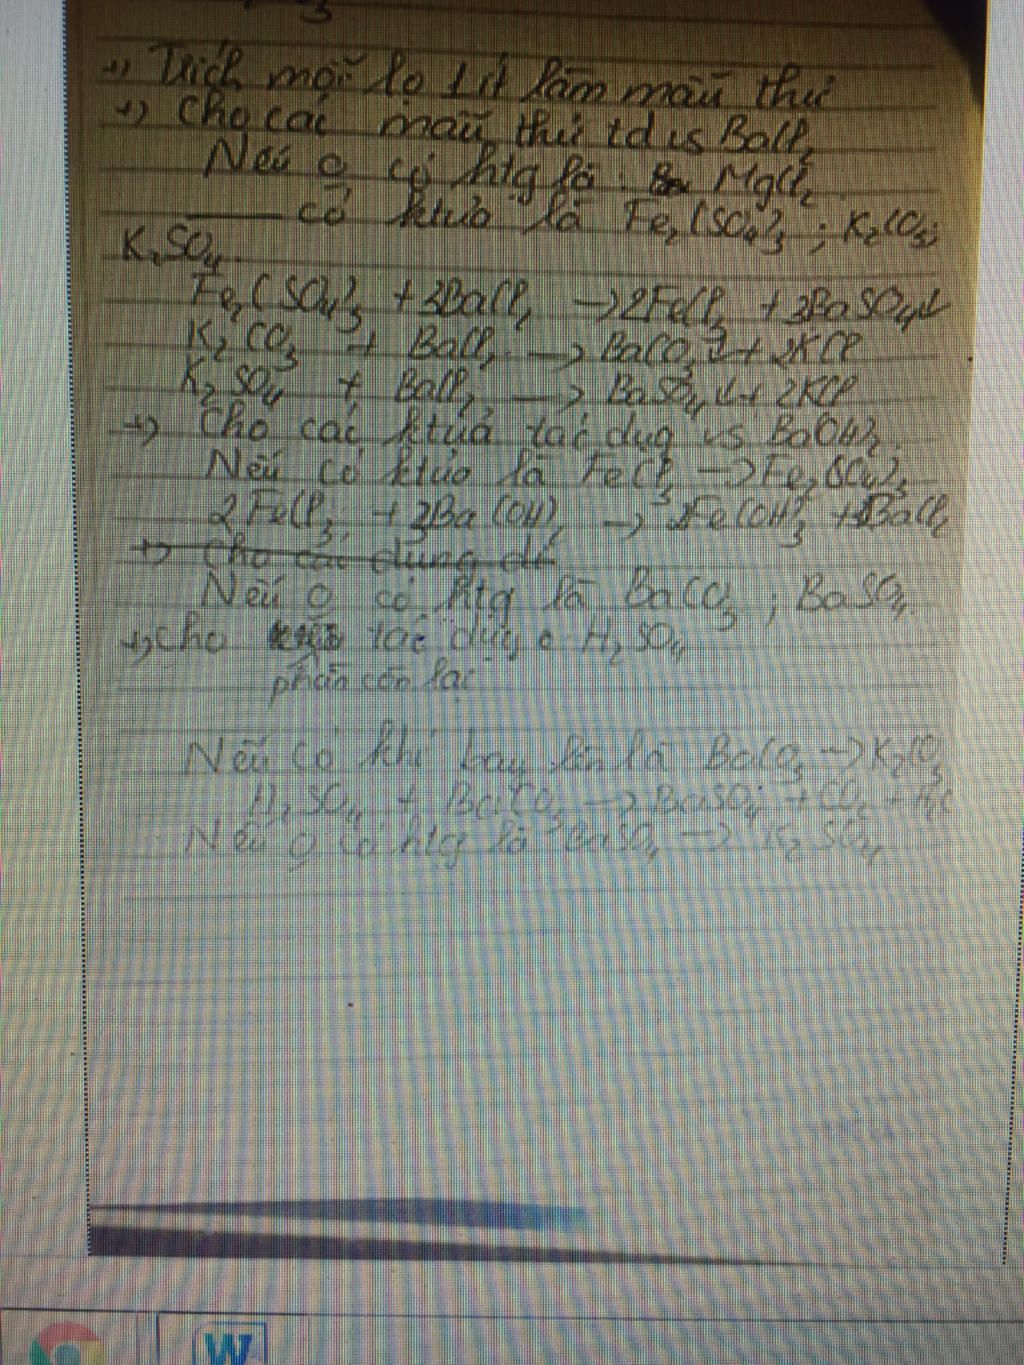 +) Trích mỗi lọ 1 ít làm mẫu thử
+) Cho các mẫu thử td vs BaCl₂
Nếu 0 có htg là: MgCl₂
—— có ktủa là Fe₂(SO₄)₃; K₂CO₃;
K₂SO₄.
Fe₂(SO₄)₃ + 3BaCl₂ → 2FeCl₃ + 3BaSO₄↓
K₂CO₃ + BaCl₂ → BaCO₃↓ + 2KCl
K₂SO₄ + BaCl₂ → BaSO₄↓ + 2KCl
+) Cho các ktủa tác dụg vs Ba(OH)₂.
Nếu có ktủa là FeCl₃ → Fe₂(SO₄)₃
2FeCl₃ + 3Ba(OH)₂ → 2Fe(OH)₃ + 3BaCl₂
+) Cho các dung dd
Nếu 0 có htg là BaCO₃; BaSO₄.
+) Cho tác dụg c H₂SO₄
phần còn lại
Nếu có khí bay lên là BaCO₃ → K₂CO₃
H₂SO₄ + BaCO₃ → BaSO₄ + CO₂ + H₂O
Nếu 0 có htg là BaSO₄ → K₂SO₄
W